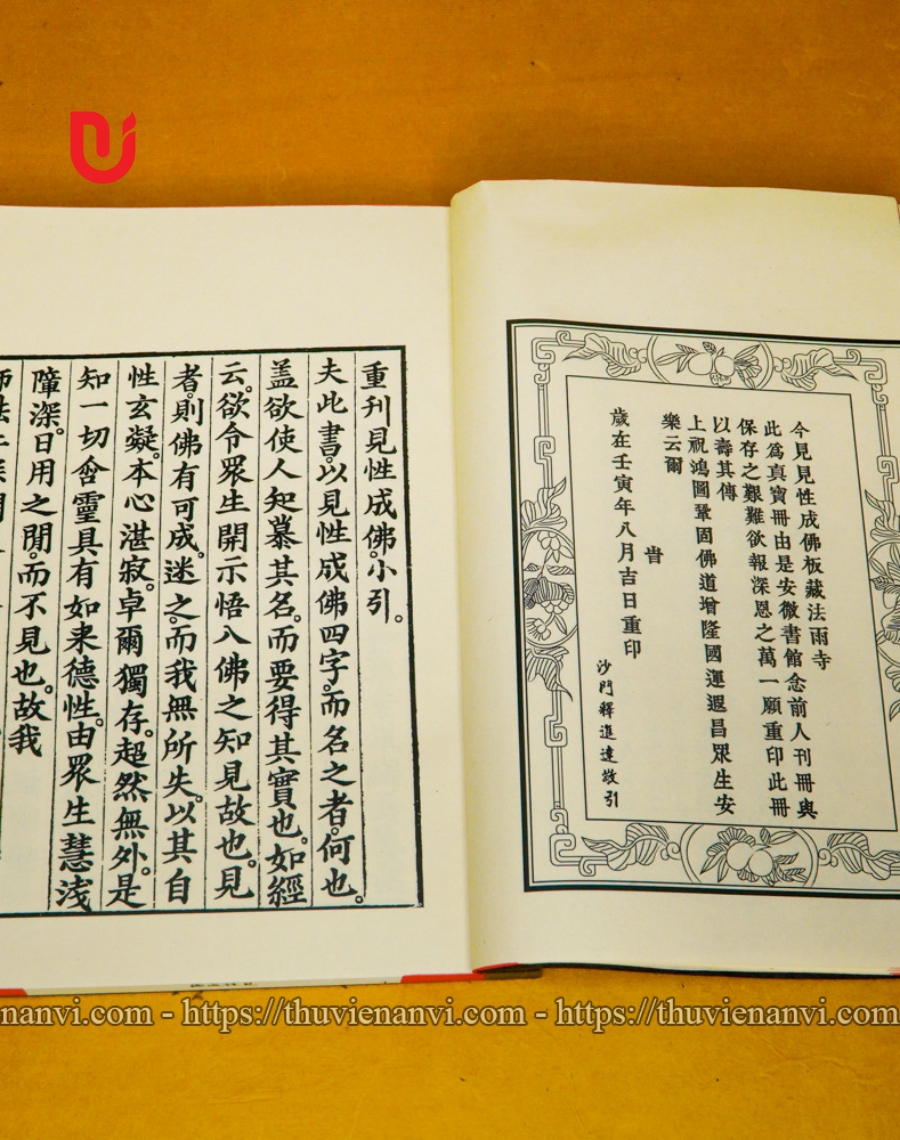 今見見性成佛板藏法雨寺
此爲真寶冊由是安微書館念前人刊冊與
保存之艱難欲報深恩之萬一願重印此冊
以壽其傳
上祝鴻圖鞏固佛道增隆國運遐昌眾生安
樂云爾
旹
歲在壬寅年八月吉日重印
沙門釋進達敬引
重刋見性成佛。小引。
夫此書。以見性成佛四字。而名之者。何也。
盖欲使人知慕其名。而要得其實也。如經
云。欲令眾生開示悟入佛之知見故也。見
者。則佛有可成。迷之。而我無所失。以其自
性玄凝。本心湛寂。卓爾獨存。超然無外。是
知一切含靈具有如来德性。由眾生慧浅
障深。日用之閒。而不見也。故我
nanvi.com - https://thuvienanvi.com - https://thuvienanvi.com